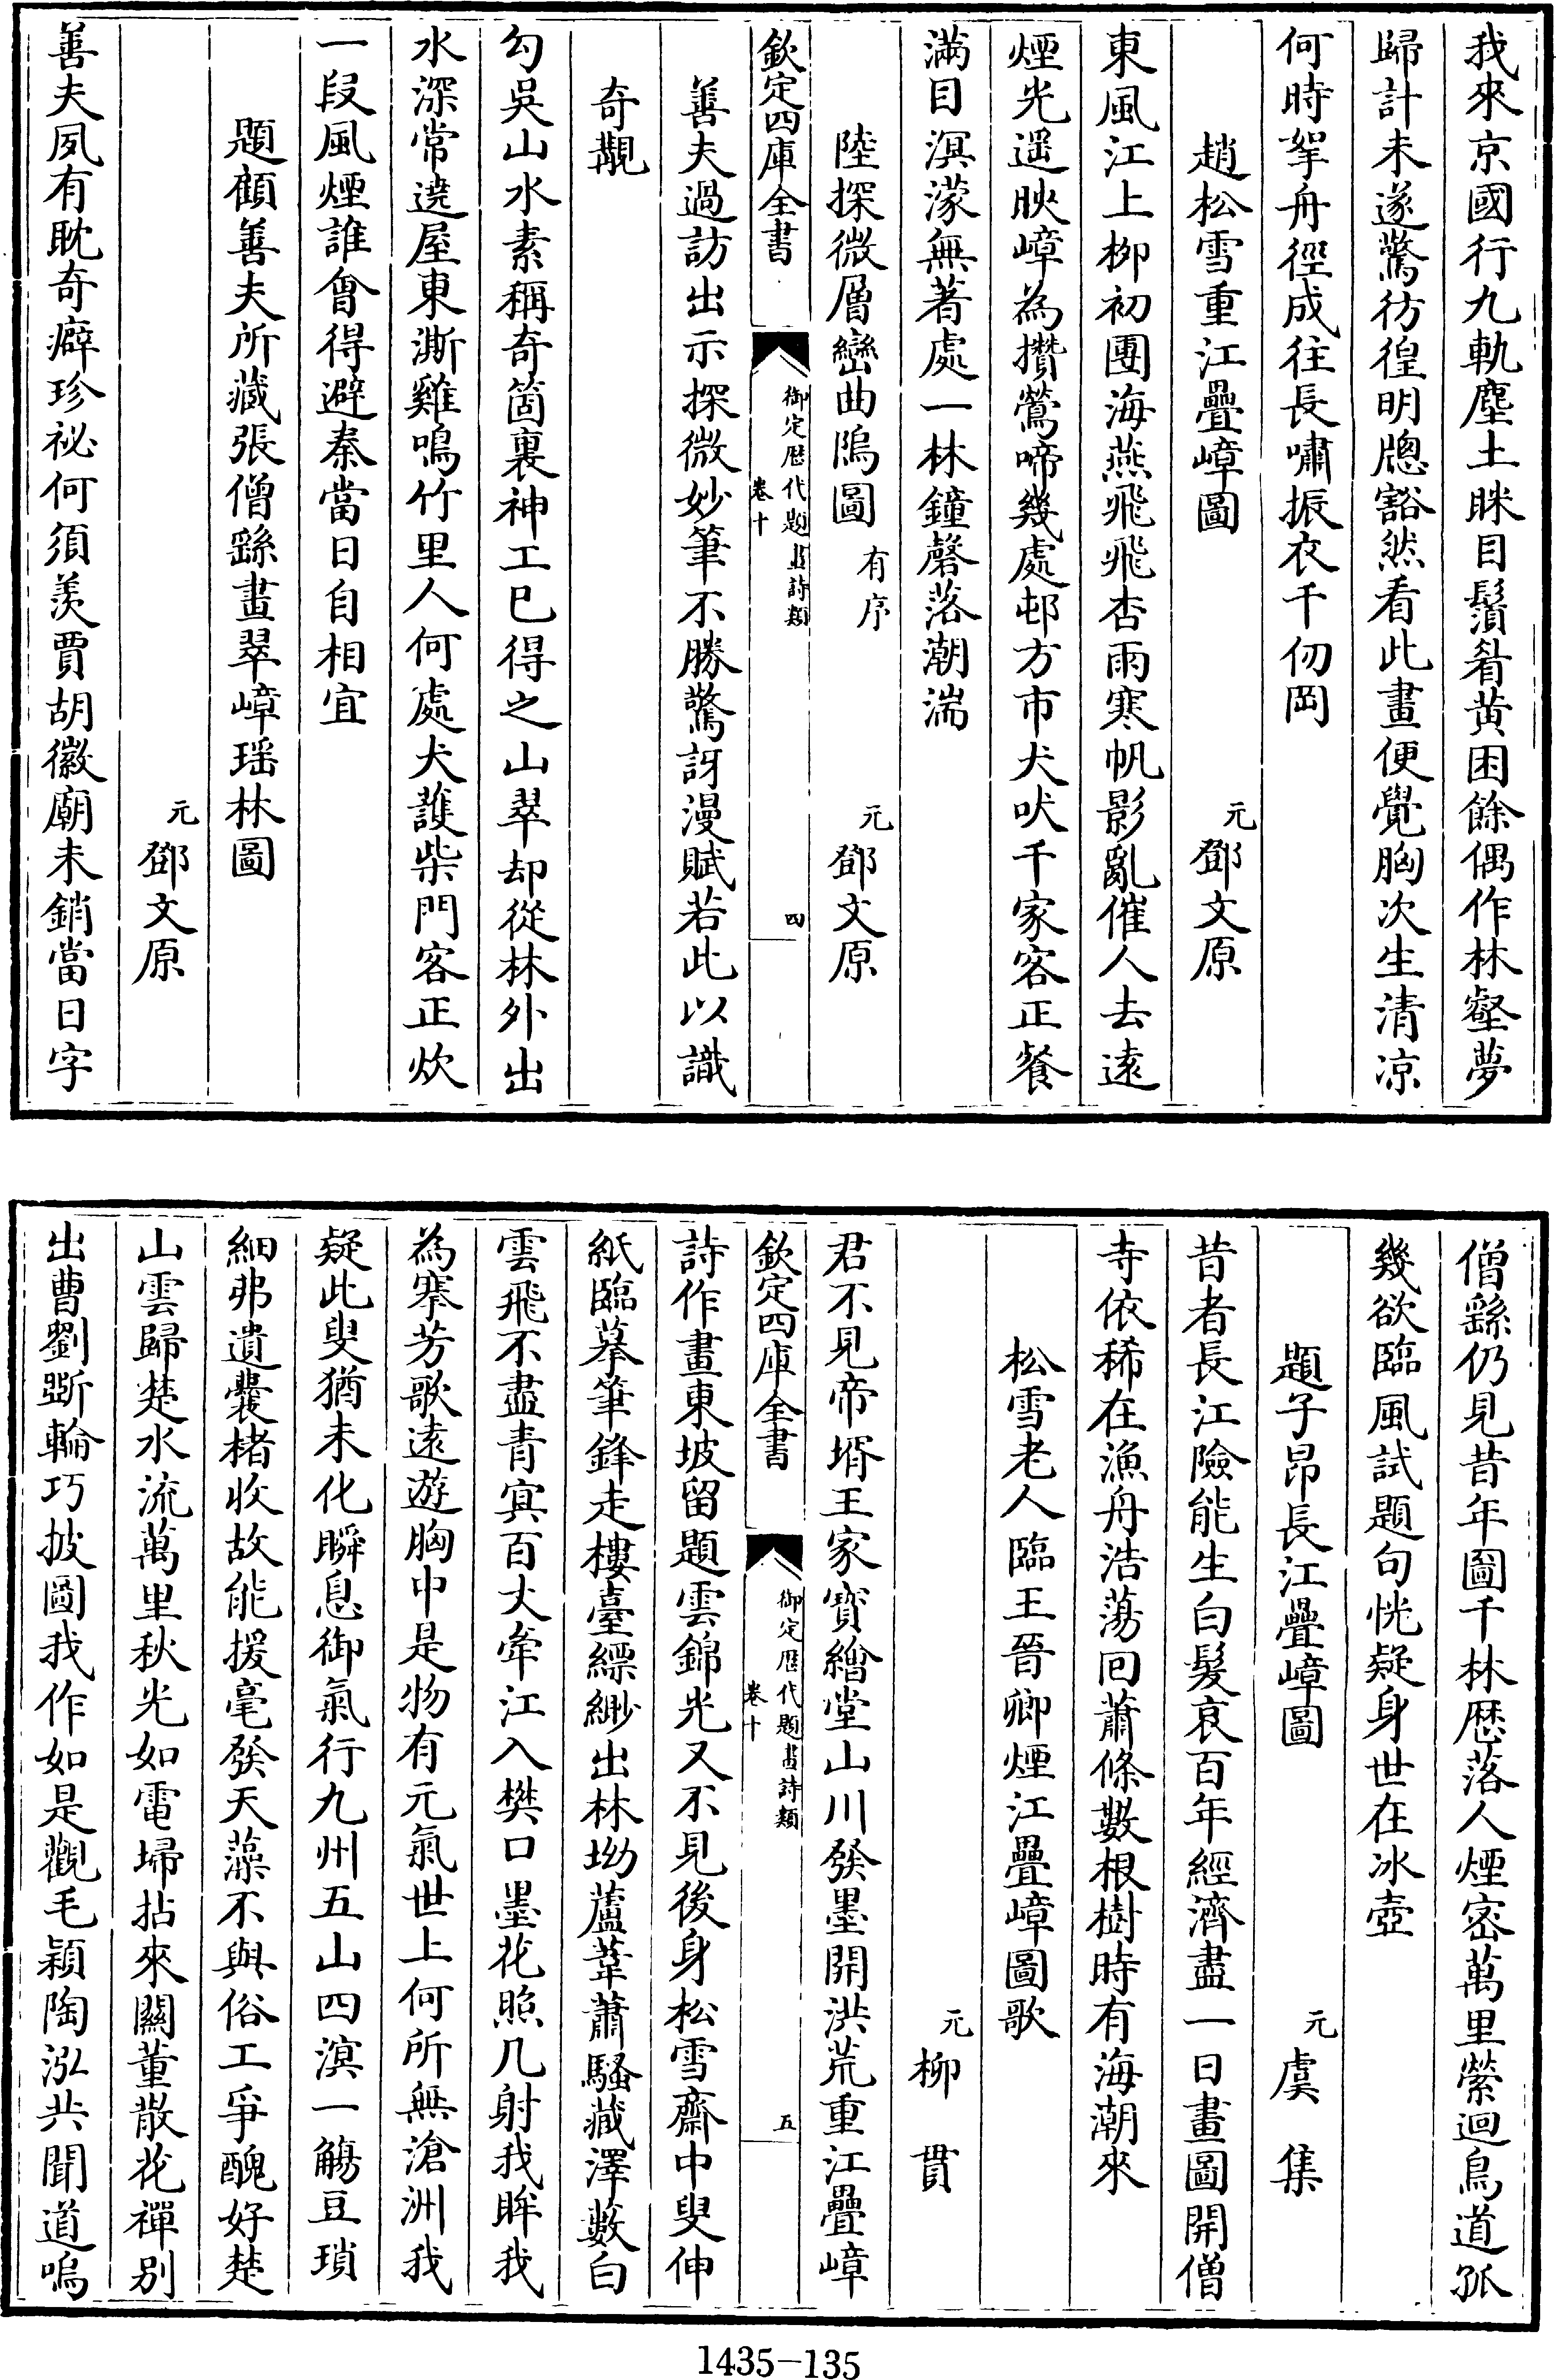 我來京國行九軌塵土眯目鬚眉黄困餘偶作林壑夢
歸計未遂驚彷徨明牕豁然看此畫便覺胸次生清凉
何時拏舟徑成往長嘯振衣千仞岡
趙松雪重江疊嶂圖
元鄧文原
東風江上栁初團海燕飛飛杏雨寒帆影亂催人去遠
煙光遥映嶂為攢鶯啼幾處邨方市犬吠千家客正餐
滿目溟濛無著處一林鐘磬落潮湍
陸探微層巒曲隖圖有序
元鄧文原
欽定四庫全書
御定歴代題畫詩類
卷十
四
善夫過訪出示探微妙筆不勝驚訝漫賦若此以識
奇觀
勾吳山水素稱奇箇裏神工已得之山翠却從林外出
水深常遶屋東澌雞鳴竹里人何處犬護柴門客正炊
一段風煙誰會得避秦當日自相宜
題顧善夫所藏張僧繇畫翠嶂瑶林圖
元鄧文原
善夫夙有耽奇癖珍祕何須羨賈胡徽廟未銷當日字
僧繇仍見昔年圖千林歴落人煙宻萬里縈迴鳥道孤
幾欲臨風試題句恍疑身世在冰壺
題子昂長江疊嶂圖
元虞集
昔者長江險能生白髮哀百年經濟盡一日畫圖開僧
寺依稀在漁舟浩蕩回蕭條數根樹時有海潮來
松雪老人臨王晉卿煙江疊嶂圖歌
元柳貫
君不見帝壻王家寳繪堂山川發墨開洪荒重江疊嶂
欽定四庫全書
御定歴代題畫詩類
卷十
五
詩作畫東坡留題雲錦光又不見後身松雪齋中叟伸
紙臨摹筆鋒走樓臺縹緲出林坳蘆葦蕭騷藏澤藪白
雲飛不盡青冥百丈牽江入樊口墨花照几射我眸我
為搴芳歌逺遊胸中是物有元氣世上何所無滄洲我
疑此叟猶未化瞬息御氣行九州五山四溟一觴豆瑣
細弗遺囊楮收故能援毫發天藻不與俗工爭醜好楚
山雲歸楚水流萬里秋光如電埽拈來關董散花禪别
出曹劉斲輪巧披圖我作如是觀毛穎陶泓共聞道嗚
1435-135